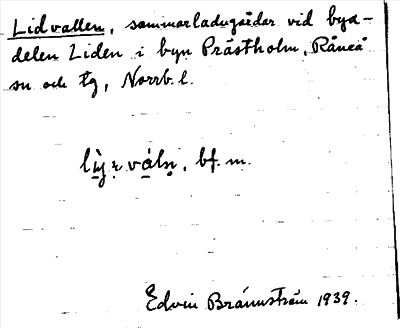 Lidvallen, sommarladugårdar vid bya-
delen Liden i byn Prästholm, Råneå
sn och tg, Norrb. l.
bf. m.
Edvin Brännström 1939.